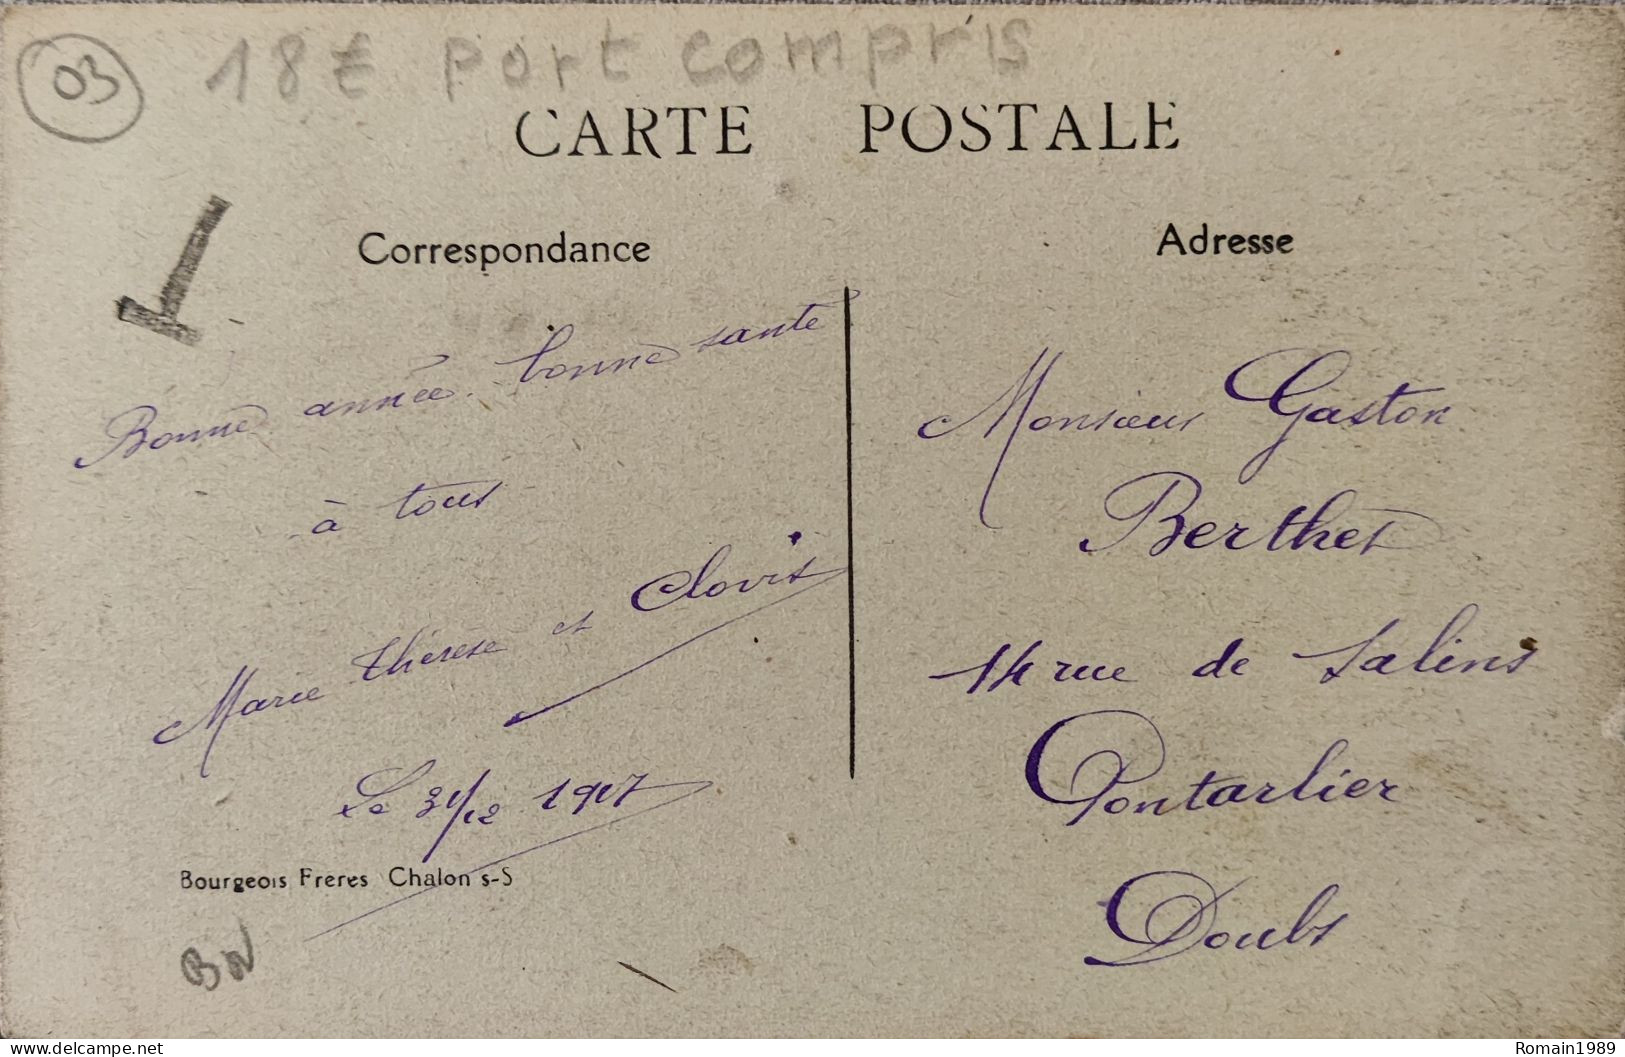 03 18€ port compris
CARTE POSTALE
Correspondance
Bonne année. bonne sante
à tous
Marie thérèse et Clovis
Le 31/12 1917
Bourgeois Freres Chalon s-S
BN
Adresse
Monsieur Gaston
Berthet
14 rue de Salins
Pontarlier
Doubs
delcampe.net
Romain1989